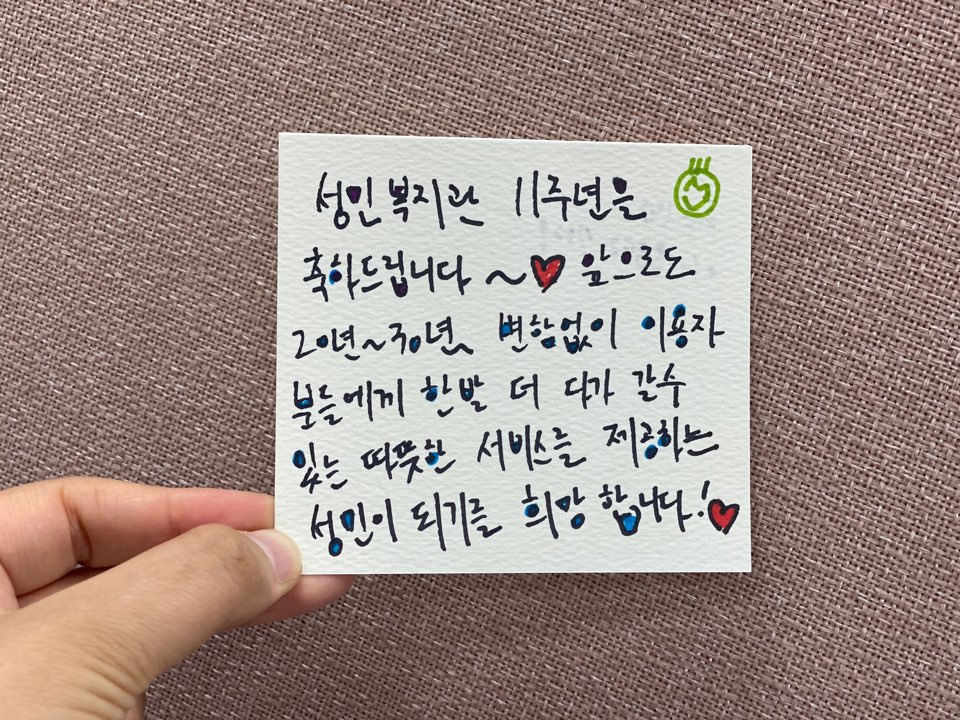 성민복지관 11주년을
축하드립니다 ~♥ 앞으로도
20년~30년~ 변함없이 이용자
분들에게 한발 더 다가 갈수
있는 따뜻한 서비스를 제공하는
성민이 되기를 희망 합니다!♥